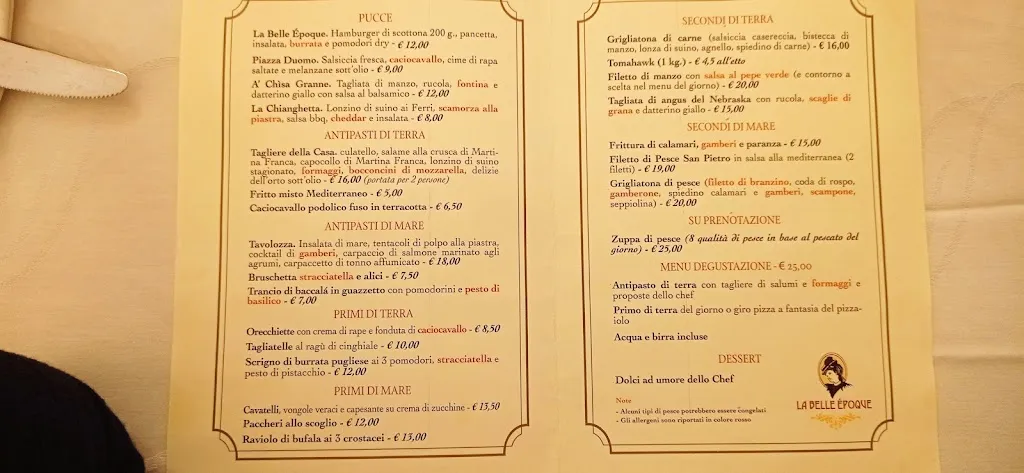 PUCCE
La Belle Époque. Hamburger di scottona 200 g., pancetta,
insalata, burrata e pomodori dry - € 12,00
Piazza Duomo. Salsiccia fresca, caciocavallo, cime di rapa
saltate e melanzane sott'olio - € 9,00
A' Chìsa Granne. Tagliata di manzo, rucola, fontina e
datterino giallo con salsa al balsamico - € 12,00
La Chianghetta. Lonzino di suino ai Ferri, scamorza alla
piastra, salsa bbq, cheddar e insalata - € 8,00
ANTIPASTI DI TERRA
Tagliere della Casa. culatello, salame alla crusca di Marti-
na Franca, capocollo di Martina Franca, lonzino di suino
stagionato, formaggi, bocconcini di mozzarella, delizie
dell'orto sott'olio - € 16,00 (portata per 2 persone)
Fritto misto Mediterraneo - € 5,00
Caciocavallo podolico fuso in terracotta - € 6,50
ANTIPASTI DI MARE
Tavolozza. Insalata di mare, tentacoli di polpo alla piastra,
cocktail di gamberi, carpaccio di salmone marinato agli
agrumi, carpaccetto di tonno affumicato - € 18,00
Bruschetta stracciatella e alici - € 7,50
Trancio di baccalá in guazzetto con pomodorini e pesto di
basilico - € 7,00
PRIMI DI TERRA
Orecchiette con crema di rape e fonduta di caciocavallo - € 8,50
Tagliatelle al ragù di cinghiale - € 10,00
Scrigno di burrata pugliese ai 3 pomodori, stracciatella e
pesto di pistacchio - € 12,00
PRIMI DI MARE
Cavatelli, vongole veraci e capesante su crema di zucchine - € 13,50
Paccheri allo scoglio - € 12,00
Raviolo di bufala ai 3 crostacei - € 13,00
SECONDI DI TERRA
Grigliatona di carne (salsiccia casereccia, bistecca di
manzo, lonza di suino, agnello, spiedino di carne) - € 16,00
Tomahawk (1 kg.) - € 4,5 all'etto
Filetto di manzo con salsa al pepe verde (e contorno a
scelta nel menu del giorno) - € 20,00
Tagliata di angus del Nebraska con rucola, scaglie di
grana e datterino giallo - € 15,00
SECONDI DI MARE
Frittura di calamari, gamberi e paranza - € 15,00
Filetto di Pesce San Pietro in salsa alla mediterranea (2
filetti) - € 19,00
Grigliatona di pesce (filetto di branzino, coda di rospo,
gamberone, spiedino calamari e gamberi, scampone,
seppiolina) - € 20,00
SU PRENOTAZIONE
Zuppa di pesce (8 qualità di pesce in base al pescato del
giorno) - € 25,00
MENU DEGUSTAZIONE - € 25,00
Antipasto di terra con tagliere di salumi e formaggi e
proposte dello chef
Primo di terra del giorno o giro pizza a fantasia del pizza-
iolo
Acqua e birra incluse
DESSERT
Dolci ad umore dello Chef
Note
- Alcuni tipi di pesce potrebbero essere congelati
- Gli allergeni sono riportati in colore rosso
LA BELLE ÉPOQUE